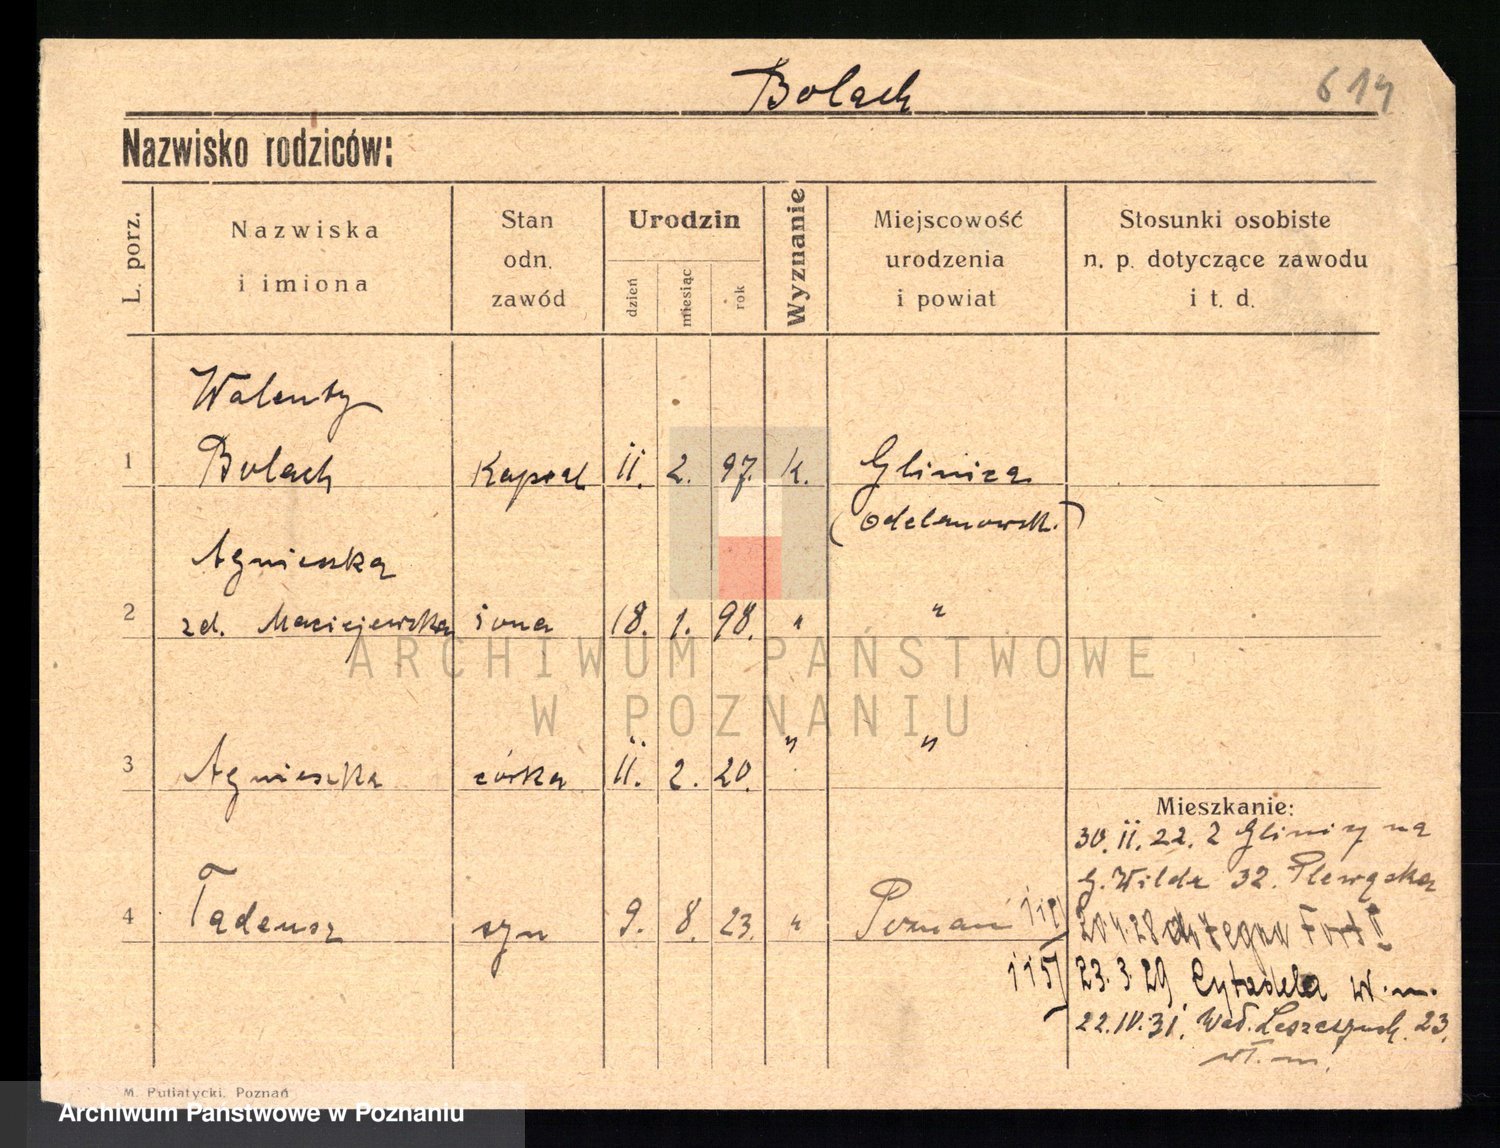 Bolach
614
Nazwisko rodziców:
L. porz.
Nazwiska
i imiona
Stan
odn.
zawód
Urodzin
dzień
miesiąc
rok
Wyznanie
Miejscowość
urodzenia
i powiat
Stosunki osobiste
n. p. dotyczące zawodu
i t. d.
Walenty
1 Bolach Kapral 11. 2. 97. k. Glinica
(odolanowsk.)
Agnieszka
2 zd. Maciejewska żona 18. 1. 98. " "
3 Agnieszka córka 11. 2. 20. " "
Mieszkanie:
30. 11. 22. z Glinicy na
G. Wilda 32.
4 Tadeusz syn 9. 8. 23. " Poznań
Fort II
115) 23. 3. 29. Cytadela w. m.
22. IV. 31. 23.
w. m.
M. Putiatycki, Poznań
ARCHIWUM PAŃSTWOWE
W POZNANIU
Archiwum Państwowe w Poznaniu